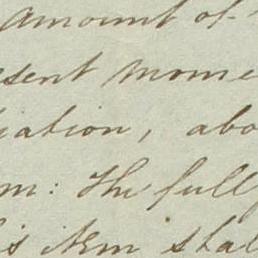 amount of
sent mome
iation, abo
m: The full
is item shal